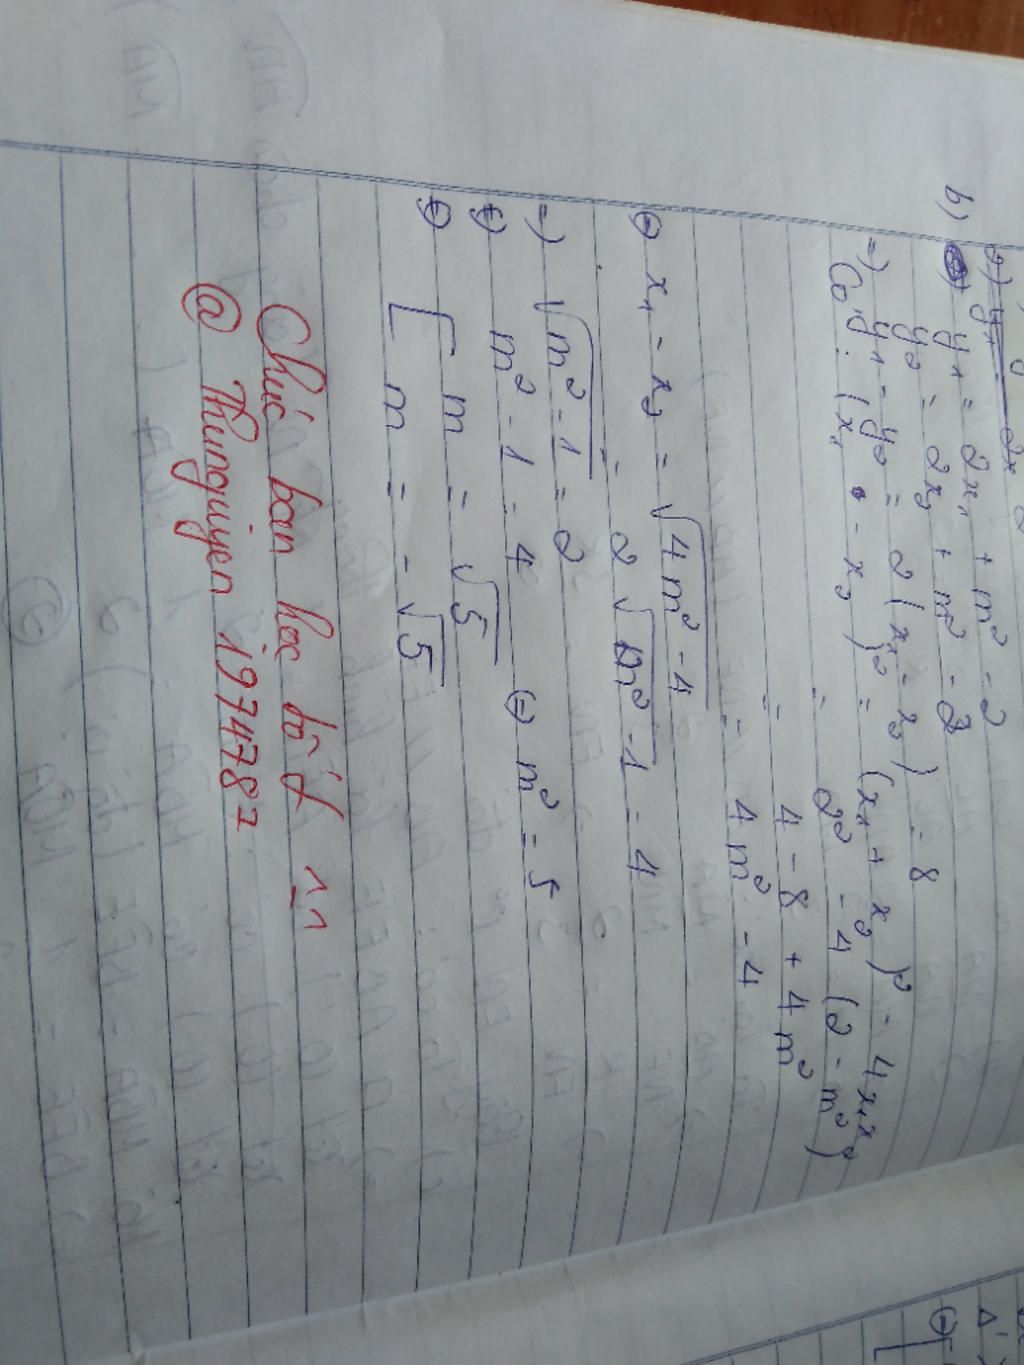 b) y₁ = 2x₁ + m² - 2
y₂ = 2x₂ + m² - 2
=) y₁ - y₂ = 2(x₁ - x₂) = 8
Có: (x₁ - x₂)² = (x₁ + x₂)² - 4x₁x₂
= 2² - 4(2 - m²)
= 4 - 8 + 4m²
= 4m² - 4
⇔ x₁ - x₂ = √4m² - 4
= 2√m² - 1 = 4
=) √m² - 1 = 2
⇔ m² - 1 = 4 ⇔ m² = 5
⇔ [ m = √5
m = -√5
Chúc bạn học tốt ^^
@ Thunguyen 1974787